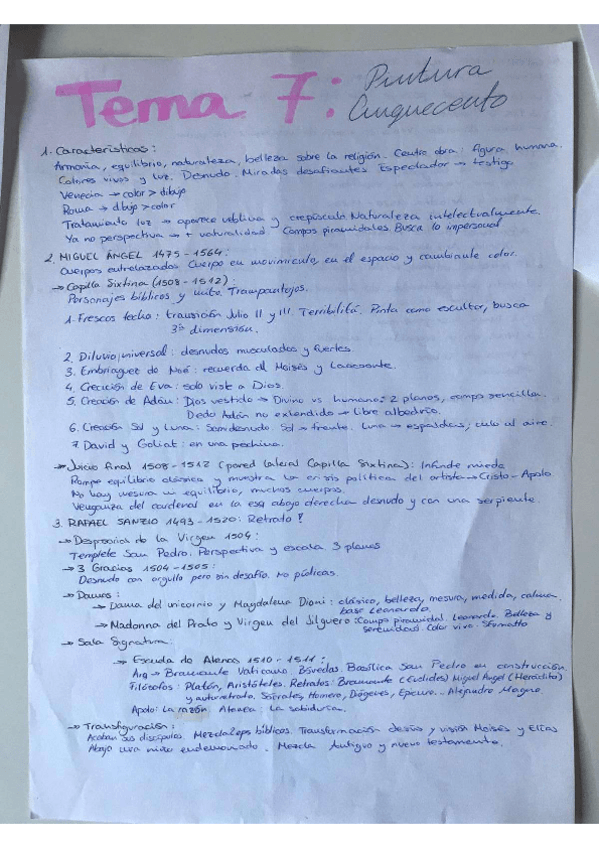 Tema 7: Pintura
Cinquecento
1. Características:
Armonía, equilibrio, naturaleza, belleza sobre la religión. Centro obra: figura humana.
Colores vivos y luz. Desnudo. Miradas desafiantes Espectador → testigo
Venecia → color > dibujo
Roma → dibujo > color
Tratamiento luz → aparece neblina y crepúsculo Naturaleza intelectualmente.
Ya no perspectiva → + naturalidad. Compos piramidales. Busca lo impersonal
2. MIGUEL ÁNGEL 1475 - 1564:
Cuerpos entrelazados. Cuerpo en movimiento, en el espacio y cambiante color.
→ Capilla Sixtina (1508 - 1512):
Personajes bíblicos y mito. Trampantojos.
1. Frescos techo: transición Julio II y III. Terribilitá. Pinta como escultor, busca
3ª dimensión.
2. Diluvio universal: desnudos musculados y fuertes.
3. Embriaguez de Noé: recuerda al Moisés y Laocoonte.
4. Creación de Eva: solo viste a Dios.
5. Creación de Adán: Dios vestido → Divino vs humano: 2 planos, compo sencilla.
Dedo Adán no extendido → libre albedrío.
6. Creación Sol y Luna: Semidesnudo. Sol → frente. Luna → espaldas; culo al aire.
7. David y Goliat: en una pechina.
→ Juicio Final 1508 - 1512 (pared lateral Capilla Sixtina): Infunde miedo
Rompe equilibrio clásico y muestra la crisis política del artista → Cristo - Apolo
No hay mesura ni equilibrio, muchos cuerpos.
Venganza del cardenal en la esq abajo derecha desnudo y con una serpiente.
3. RAFAEL SANZIO 1493 - 1520: Retrato!
→ Desposorios de la Virgen 1504:
Templete San Pedro. Perspectiva y escala 3 planos
→ 3 Gracias 1504 - 1505:
Desnudo con orgullo pero sin desafío. No púdicas.
→ Damas:
→ Dama del unicornio y Magdalena Dioni: clásico, belleza, mesura, medida, calma.
base Leonardo.
→ Madonna del Prato y Virgen del Jilguero: Compo piramidal. Leonardo. Belleza y
serenidad. Color vivo. Sfumatto
→ Sala Signatura:
→ Escuela de Atenas 1510 - 1511:
Arq → Bramante Vaticano. Bóvedas. Basílica San Pedro en construcción.
Filósofos: Platón, Aristóteles. Retratos: Bramante (Euclides) Miguel Ángel (Heráclito)
y autorretrato. Sócrates, Homero, Diógenes, Epicuro... Alejandro Magno.
Apolo: la razón. Atenea: la sabiduría.
→ Transfiguración:
Acaban sus discípulos. Mezcla leps bíblicos. Transformación Jesús y visión Moisés y Elías
Abajo una niño endemoniado. Mezcla Antiguo y nuevo testamento.